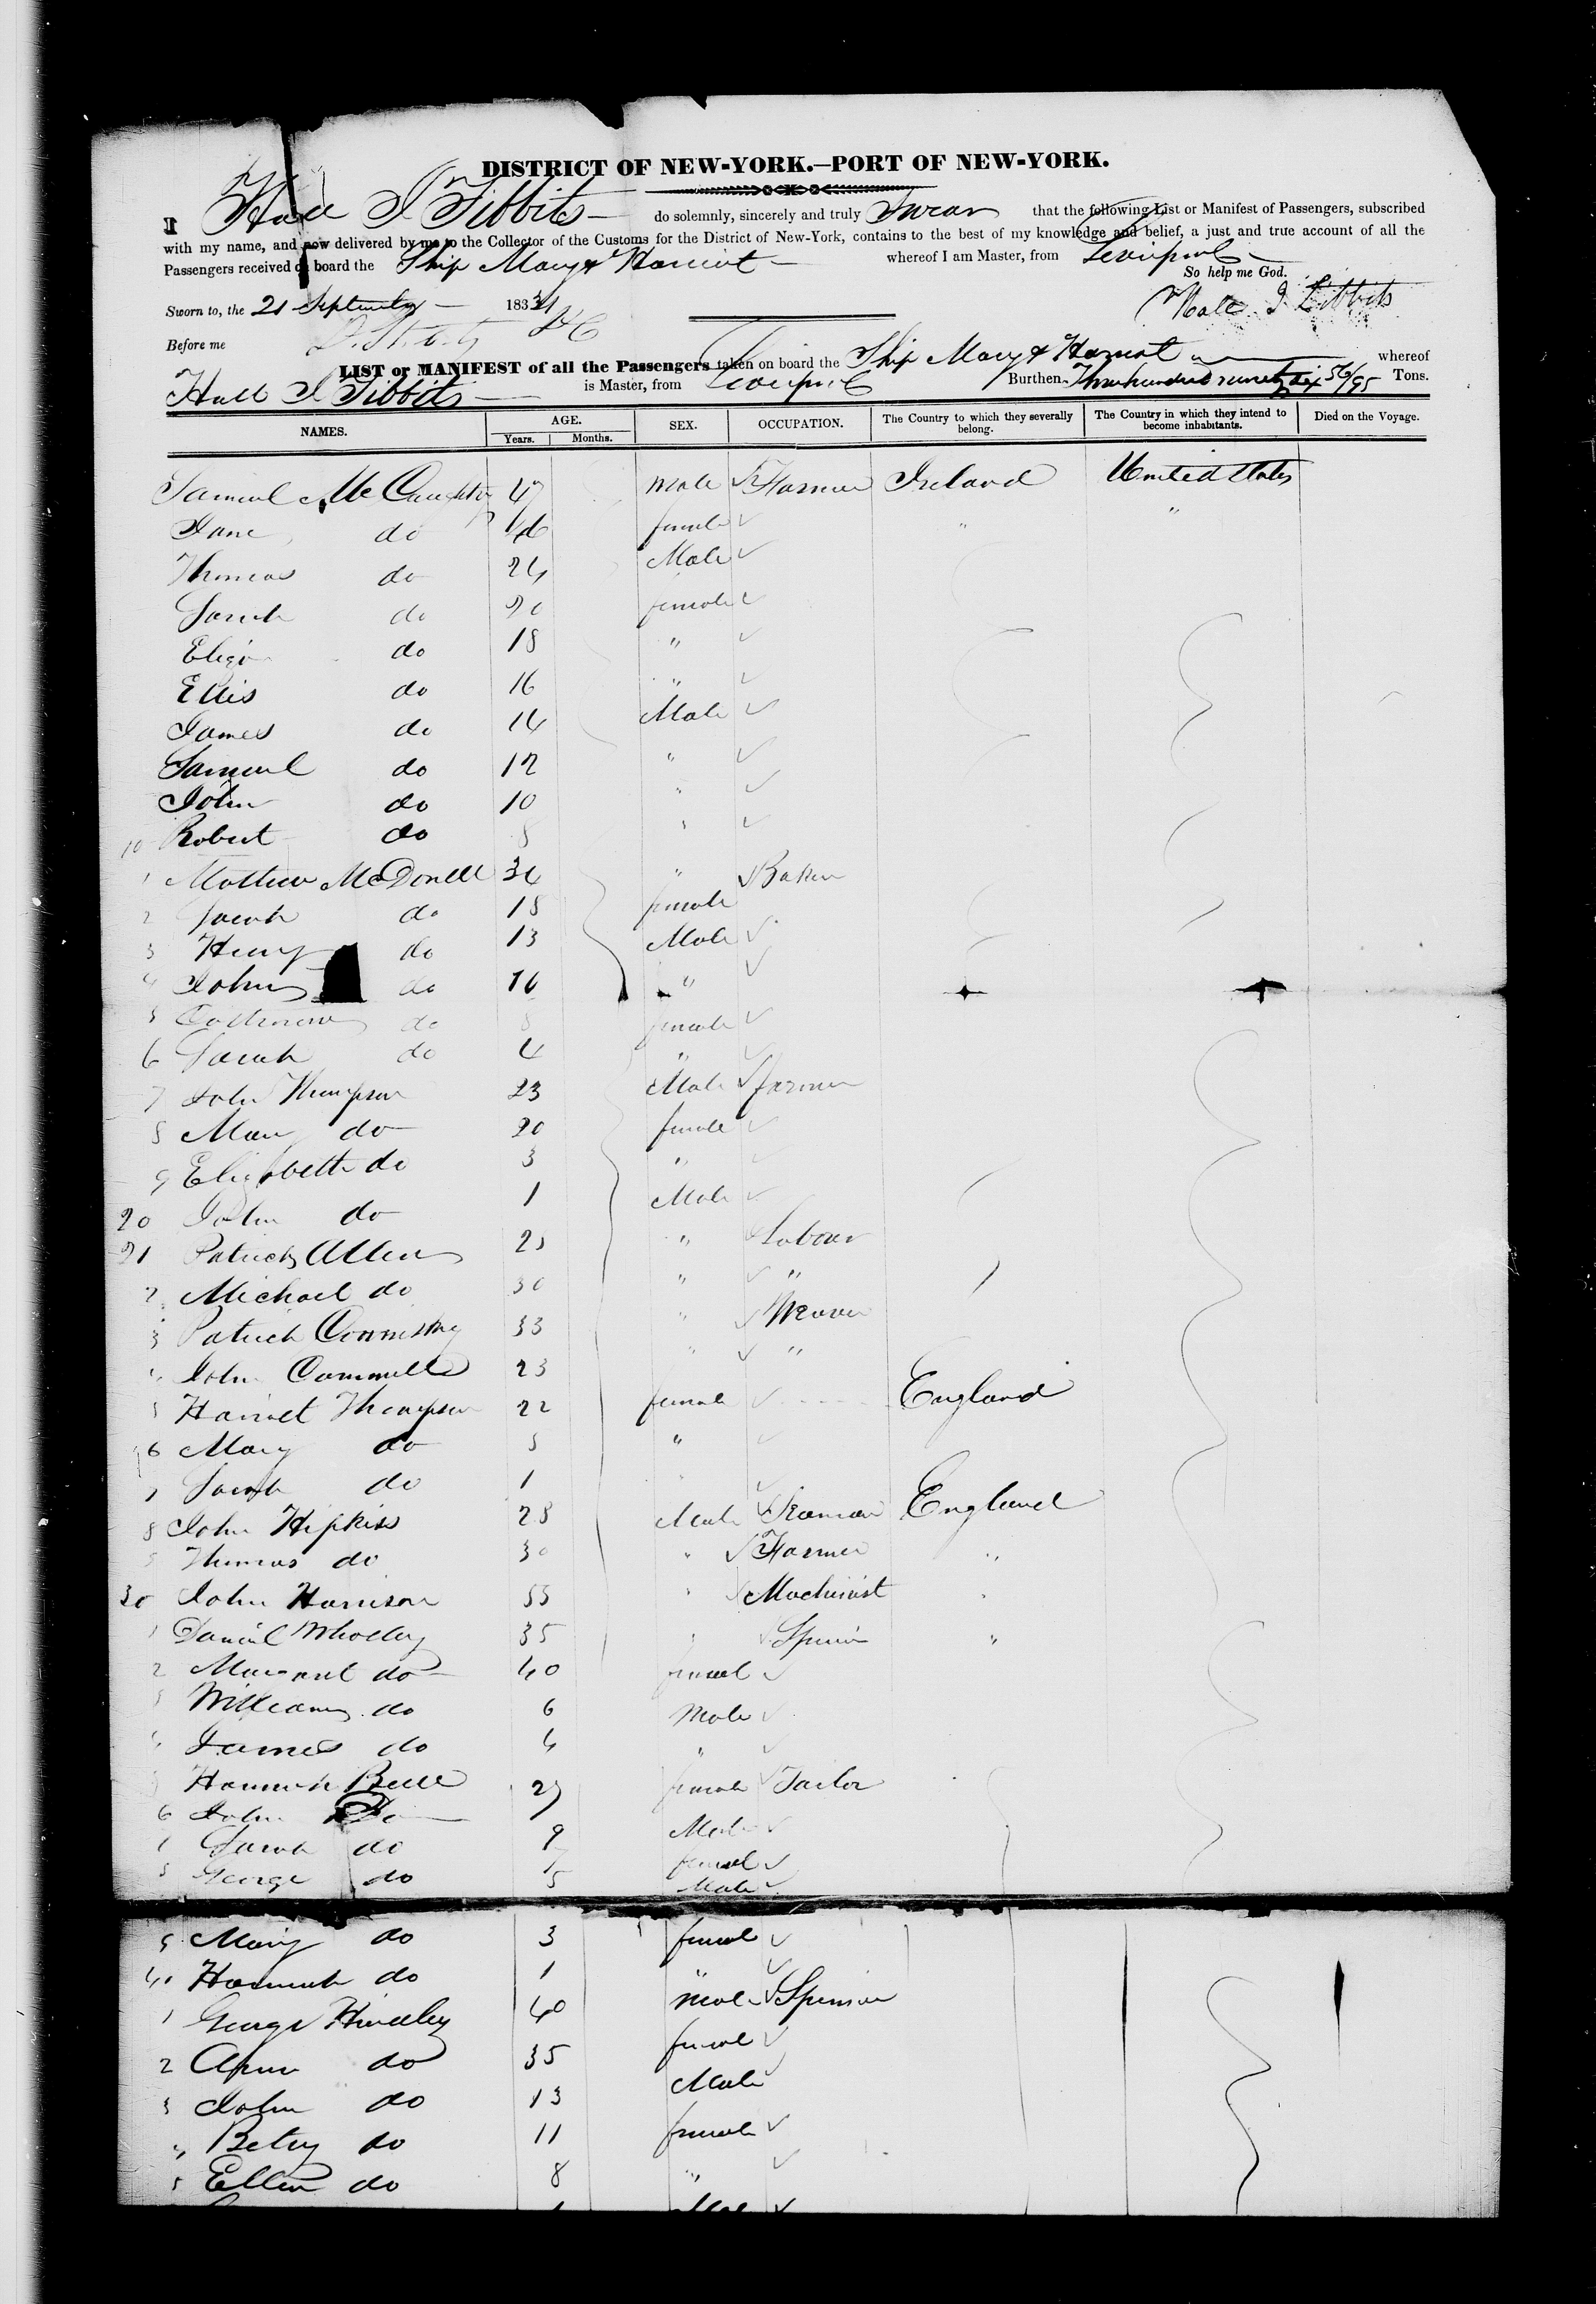 DISTRICT OF NEW-YORK.—PORT OF NEW-YORK.
I Hall J Tibbits do solemnly, sincerely and truly Swear that the following List or Manifest of Passengers, subscribed
with my name, and now delivered by me to the Collector of the Customs for the District of New-York, contains to the best of my knowledge and belief, a just and true account of all the
Passengers received on board the Ship Mary & Harriot whereof I am Master, from Liverpool
So help me God.
Sworn to, the 21 September 1834 Hall J. Tibbits
Before me
LIST or MANIFEST of all the Passengers taken on board the Ship Mary & Harriot whereof
Hall J Tibbits is Master, from Liverpool Burthen Three hundred ninety six 56/95 Tons.
NAMES. AGE. Years. Months. SEX. OCCUPATION. The Country to which they severally belong. The Country in which they intend to become inhabitants. Died on the Voyage.
Samuel 47 Male Farmer Ireland United States
Jane do 46 female " "
Thomas do 24 Male
Sarah do 20 female
Eliza do 18 "
Ellis do 16 "
James do 14 Male
Samuel do 12 "
John do 10 "
10 Robert do 8 "
1 Mathew McDonell 34 " Baker
2 Sarah do 18 female
3 Henry do 13 Male
4 John do 10 "
5 Catherine do 8 female
6 Sarah do 4 "
7 John Thompson 23 Male farmer
8 Mary do 20 female
9 Elizabeth do 3 "
20 John do 1 Male
21 Patrick Allen 25 " Labour
2 Michael do 30 " "
3 Patrick 33 " Weaver
4 John 23 " "
5 Harriet Thompson 22 female England
6 Mary do 3 "
7 Sarah do 1
8 John Hipkiss 28 Male Seaman England
9 Thomas do 30 " Farmer "
30 John Harrison 35 " Machinist "
1 Daniel Wholley 35 " Spinner "
2 Margaret do 40 female
3 William do 6 Male
4 James do 4 "
5 Hannah Bell 27 female Tailor
6 John Do 9 Male
7 Sarah do 7 female
8 George do 5 Male
9 Mary do 3 female
40 Hannah do 1 "
1 George Hindley 40 Male Spinner
2 Ann do 35 female
3 John do 13 Male
4 Betsy do 11 female
5 Ellen do 8 "